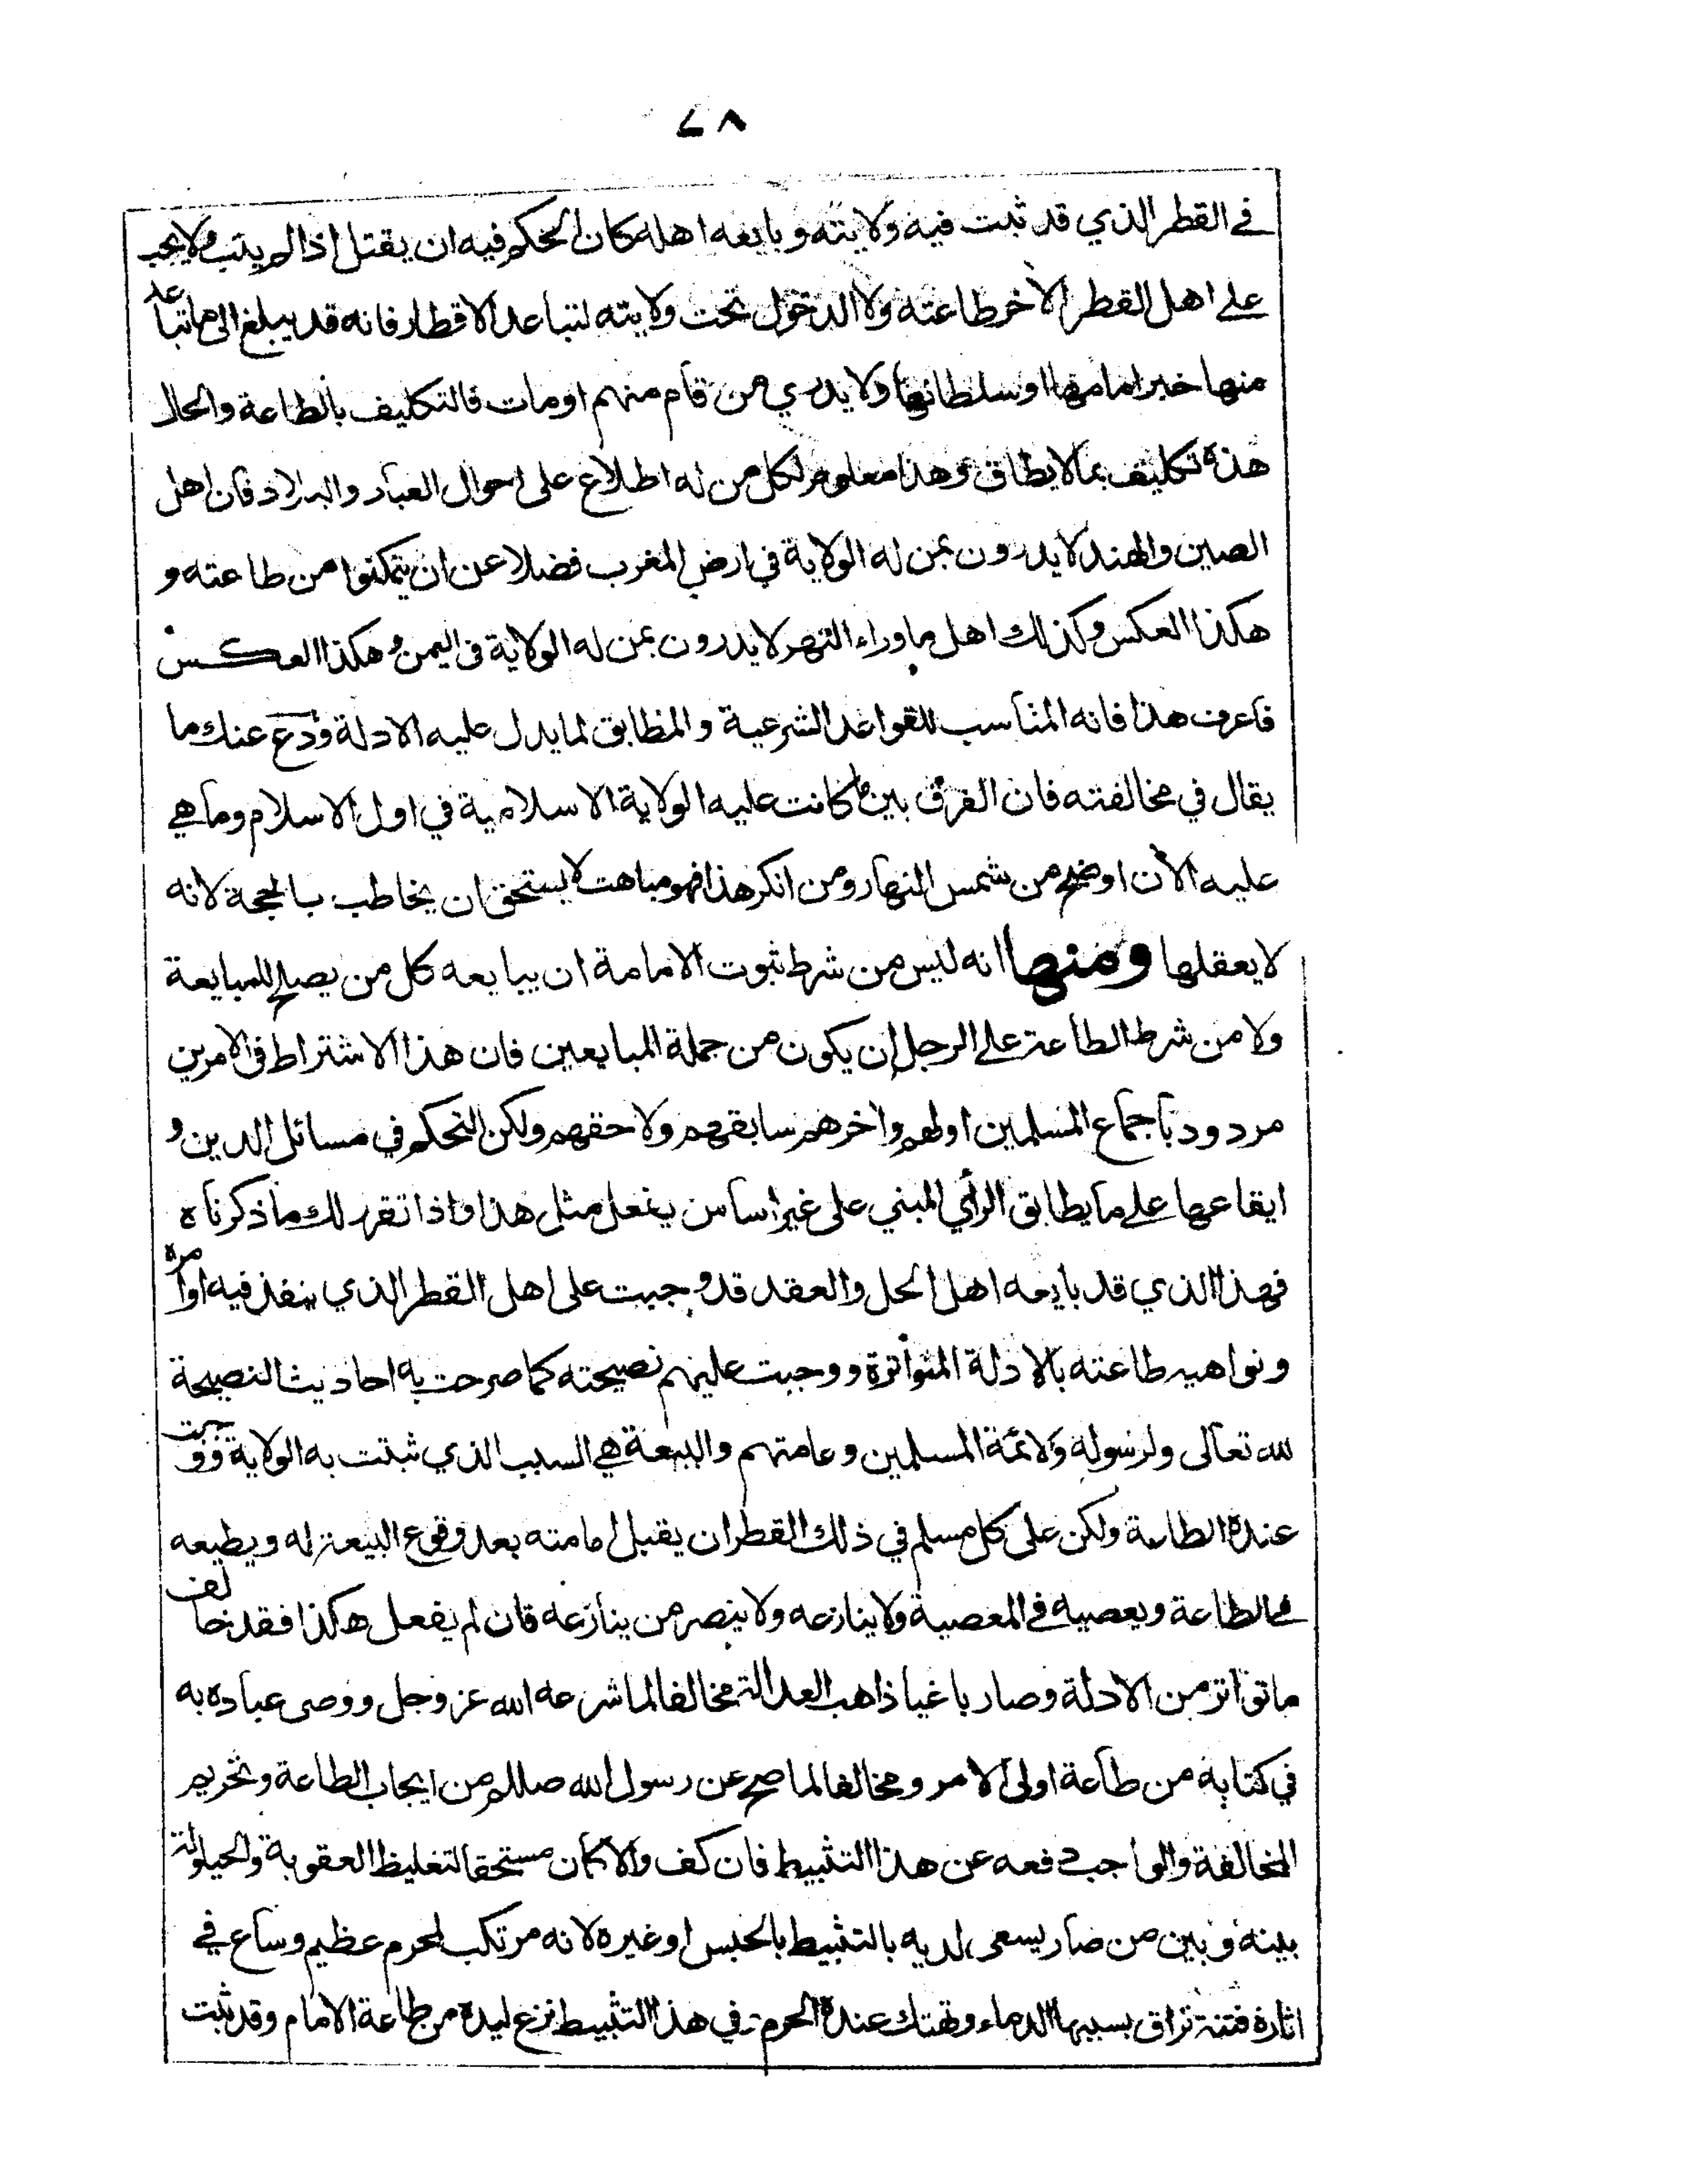 ٧٨
في القطر الذي قد ثبت فيه ولايته وبايعه اهله كان الحكم فيه ان يقتل اذا لم يتب ولا يجب
على اهل القطر الأخر طاعته ولا الدخول تحت ولايته لتباعد الاقطار فانه قد يبلغ الى ما تباعد
منها خبر امامها او سلطانها ولا يدري من قام منهم او مات فالتكليف بالطاعة والحال
هذه تكليف بما لا يطاق وهذا معلوم لكل من له اطلاع على احوال العباد والبلاد فان اهل
الصين والهند لا يدرون بمن له الولاية في ارض المغرب فضلا عن ان يتمكنوا من طاعته و
هكذا العكس وكذلك اهل ما وراء النهر لا يدرون بمن له الولاية في اليمن وهكذا العكس
فاعرف هذا فانه المناسب للقواعد الشرعية والمطابق لما يدل عليه الادلة ودع عنك ما
يقال في مخالفته فان الفرق بين ما كانت عليه الولاية الاسلامية في اول الاسلام وما هي
عليه الأن اوضح من شمس النهار ومن انكر هذا فهو مباهت لا يستحق ان يخاطب بالحجة لانه
لا يعقلها ومنها انه ليس من شرط ثبوت الامامة ان يبايعه كل من يصلح للمبايعة
ولا من شرط الطاعة على الرجل ان يكون من جملة المبايعين فان هذا الاشتراط في الامرين
مردود باجماع المسلمين اولهم وأخرهم سابقهم ولاحقهم ولكن التحكم في مسائل الدين و
ايقاعها على ما يطابق الرأي المبني على غير اساس يفعل مثل هذا واذا تقرر لك ما ذكرناه
فهذا الذي قد بايعه اهل الحل والعقد قد وجبت على اهل القطر الذي ينفذ فيه اوامره
ونواهيه طاعته بالادلة المتواترة ووجبت عليهم نصيحته كما صرحت به احاديث النصيحة
لله تعالى ولرسوله ولائمة المسلمين وعامتهم والبيعة هي السبب الذي ثبتت به الولاية فوجبت
عنده الطاعة ولكن على كل مسلم في ذلك القطر ان يقبل امامته بعد وقوع البيعة له ويطيعه
في الطاعة ويعصيه في المعصية ولا ينازعه ولا ينصر من ينازعه فان لم يفعل هكذا فقد خالف
ما تواتر من الادلة وصار باغيا ذاهب العدالة مخالفا لما شرعه الله عز وجل ووصى عباده به
في كتابه من طاعة اولى الامر ومخالفا لما صح عن رسول الله صللم من ايجاب الطاعة وتحريم
المخالفة والواجب دفعه عن هذا التثبيط فان كف والا كان مستحقا لتغليظ العقوبة والحيلولة
بينه وبين من صار يسعى لديه بالتثبيط بالحبس او غيره لانه مرتكب لحرم عظيم وساع في
اثارة فتنة تراق بسببها الدماء وتهتك عنده الحرم في هذا التثبيط نزع ليده من طاعة الامام وقد ثبت